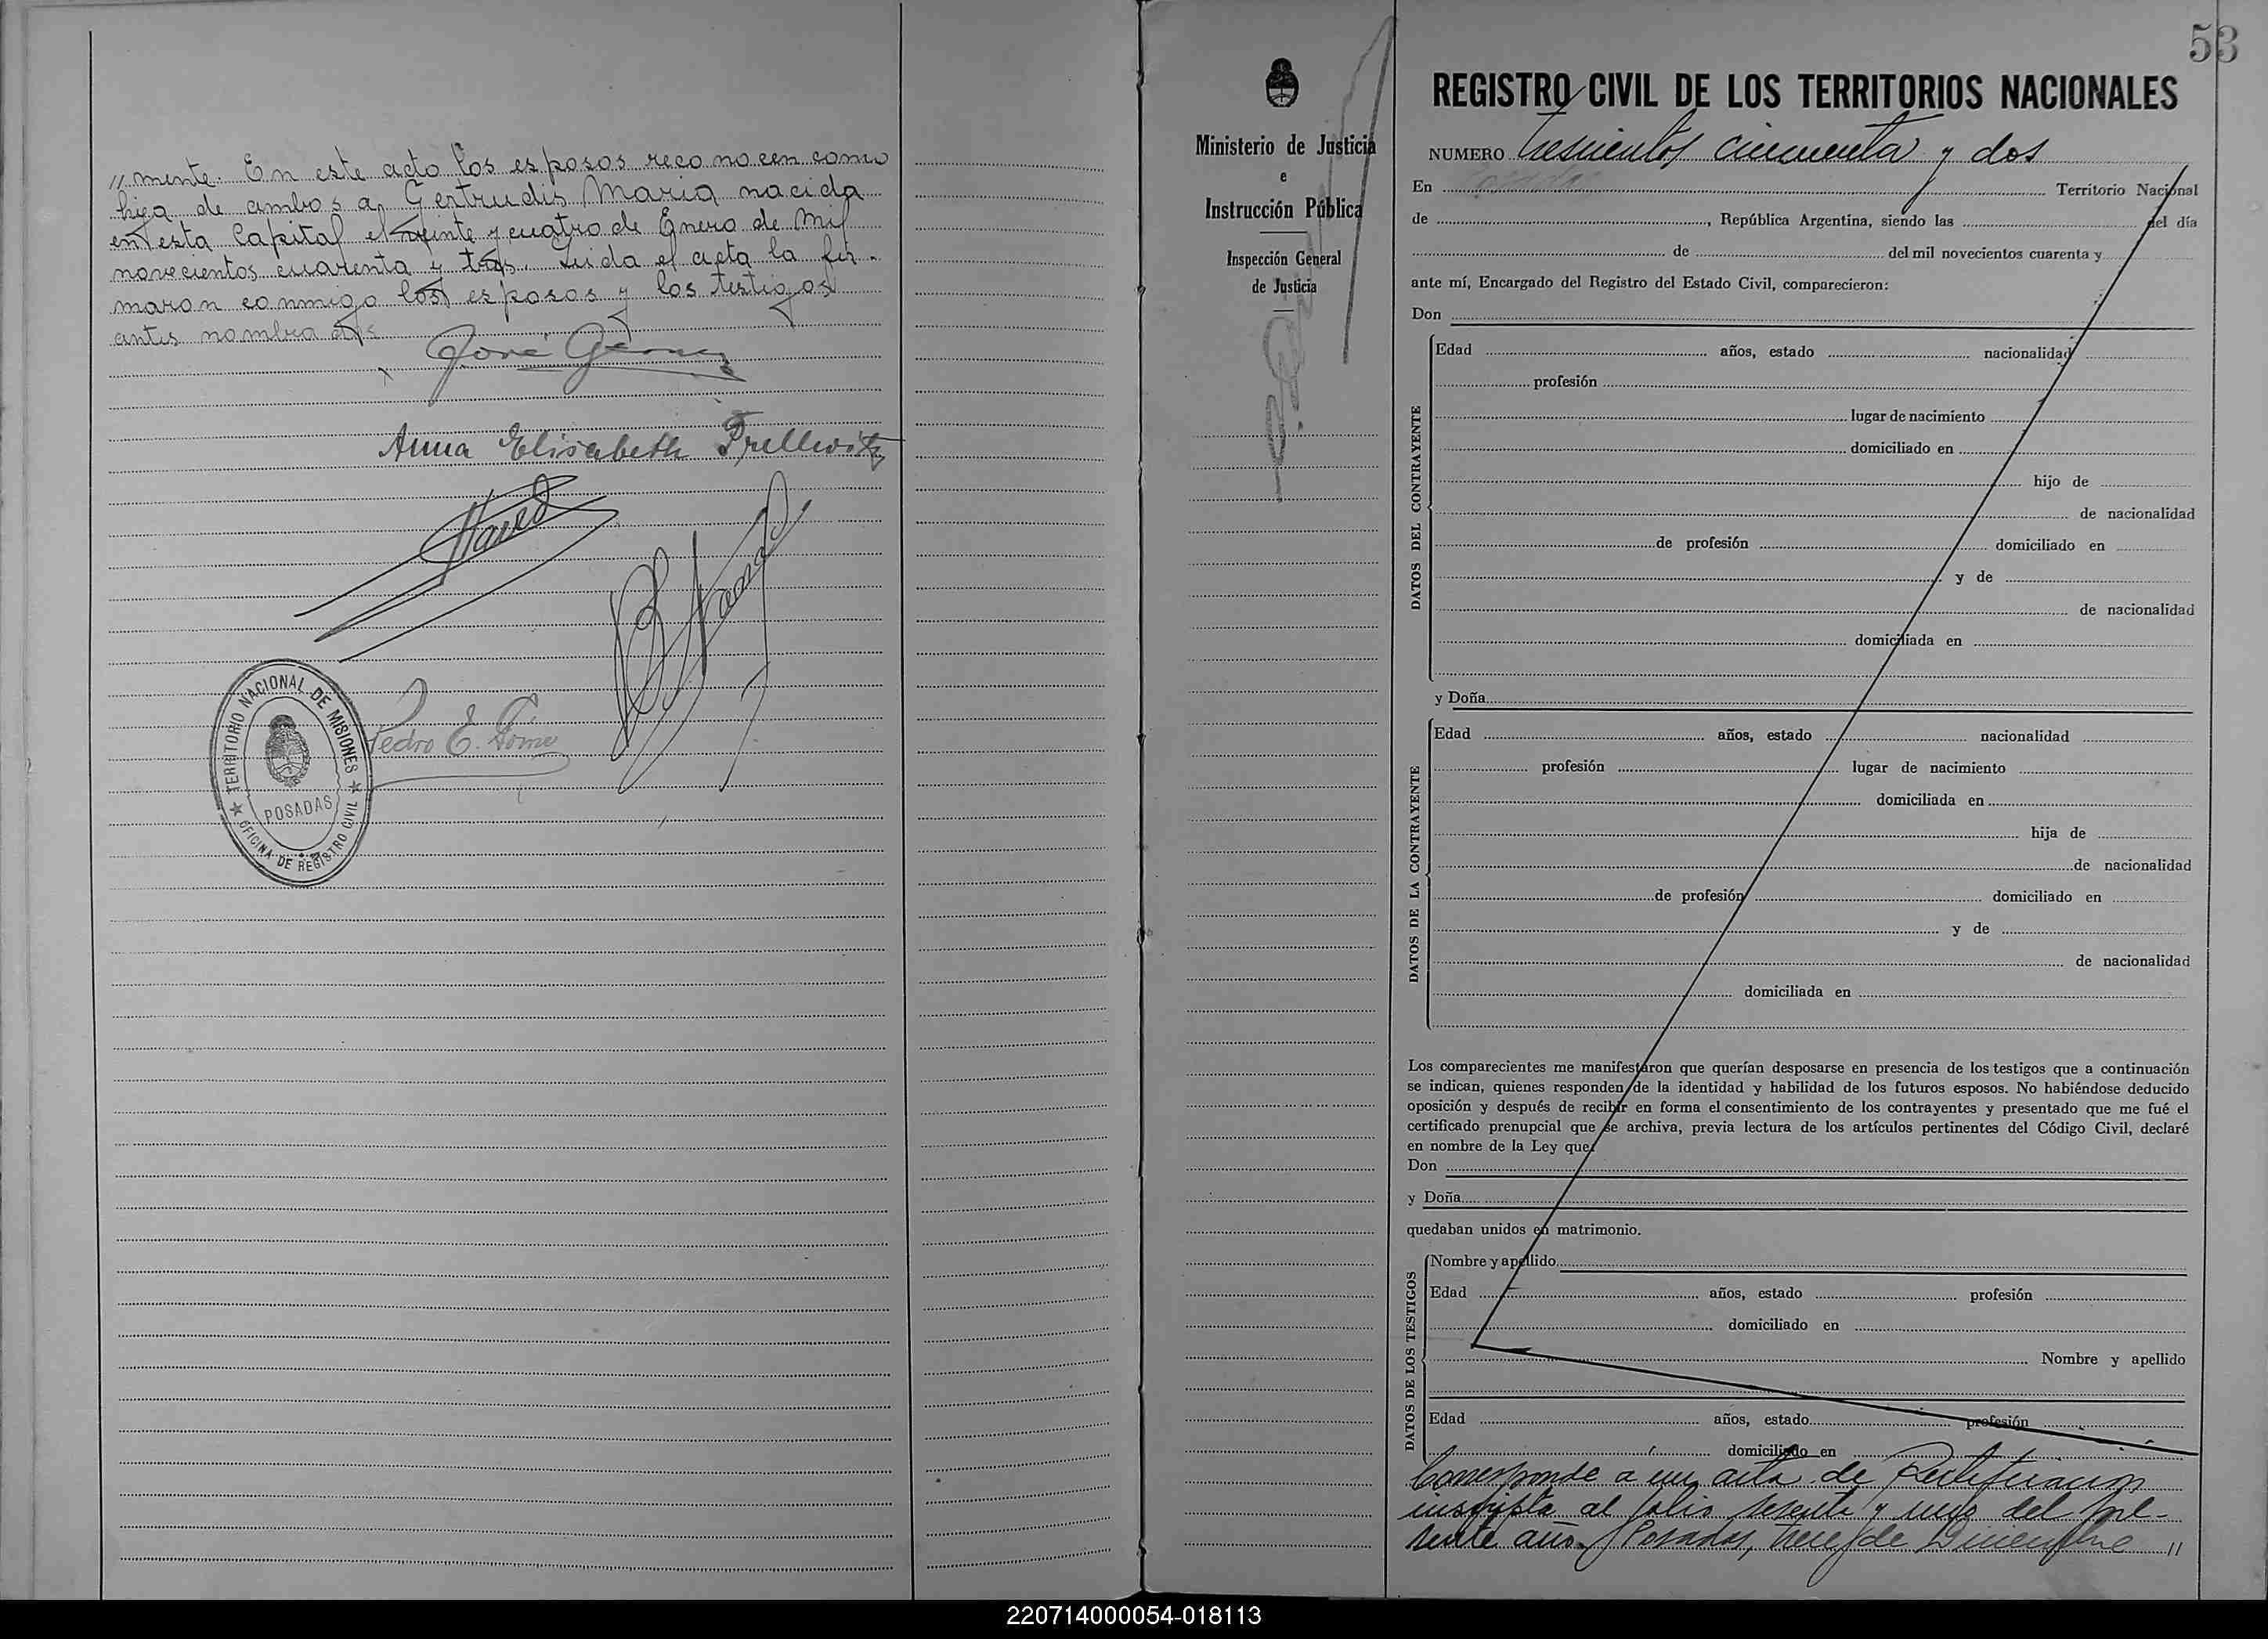 " mente. En este acto los esposos reconocen como
hija de ambos a Gertrudis Maria nacida
en esta Capital el veinte y cuatro de Enero de mil
novecientos cuarenta y tres. Leida el acta la fir-
maron conmigo los esposos y los testigos
antes nombrados
José
Anna Elisabeth Prellwitz
Pedro E.
TERRITORIO NACIONAL DE MISIONES
POSADAS
OFICINA DE REGISTRO CIVIL
Ministerio de Justicia
e
Instrucción Pública
Inspección General
de Justicia
53
REGISTRO CIVIL DE LOS TERRITORIOS NACIONALES
NUMERO trescientos cincuenta y dos
En Territorio Nacional
de , República Argentina, siendo las del día
de del mil novecientos cuarenta y
ante mí, Encargado del Registro del Estado Civil, comparecieron:
Don
DATOS DEL CONTRAYENTE
Edad años, estado nacionalidad
profesión
lugar de nacimiento
domiciliado en
hijo de
de nacionalidad
de profesión domiciliado en
y de
de nacionalidad
domiciliada en
y Doña
DATOS DE LA CONTRAYENTE
Edad años, estado nacionalidad
profesión lugar de nacimiento
domiciliada en
hija de
de nacionalidad
de profesión domiciliado en
y de
de nacionalidad
domiciliada en
Los comparecientes me manifestaron que querían desposarse en presencia de los testigos que a continuación
se indican, quienes responden de la identidad y habilidad de los futuros esposos. No habiéndose deducido
oposición y después de recibir en forma el consentimiento de los contrayentes y presentado que me fué el
certificado prenupcial que se archiva, previa lectura de los artículos pertinentes del Código Civil, declaré
en nombre de la Ley que:
Don
y Doña
quedaban unidos en matrimonio.
DATOS DE LOS TESTIGOS
Nombre y apellido
Edad años, estado profesión
domiciliado en
Nombre y apellido
Edad años, estado profesión
domiciliado en
Corresponde a un acta de Rectificacion
inscripta al folio sesenta y uno del pre-
sente año. Posadas, trece de Diciembre "
220714000054-018113